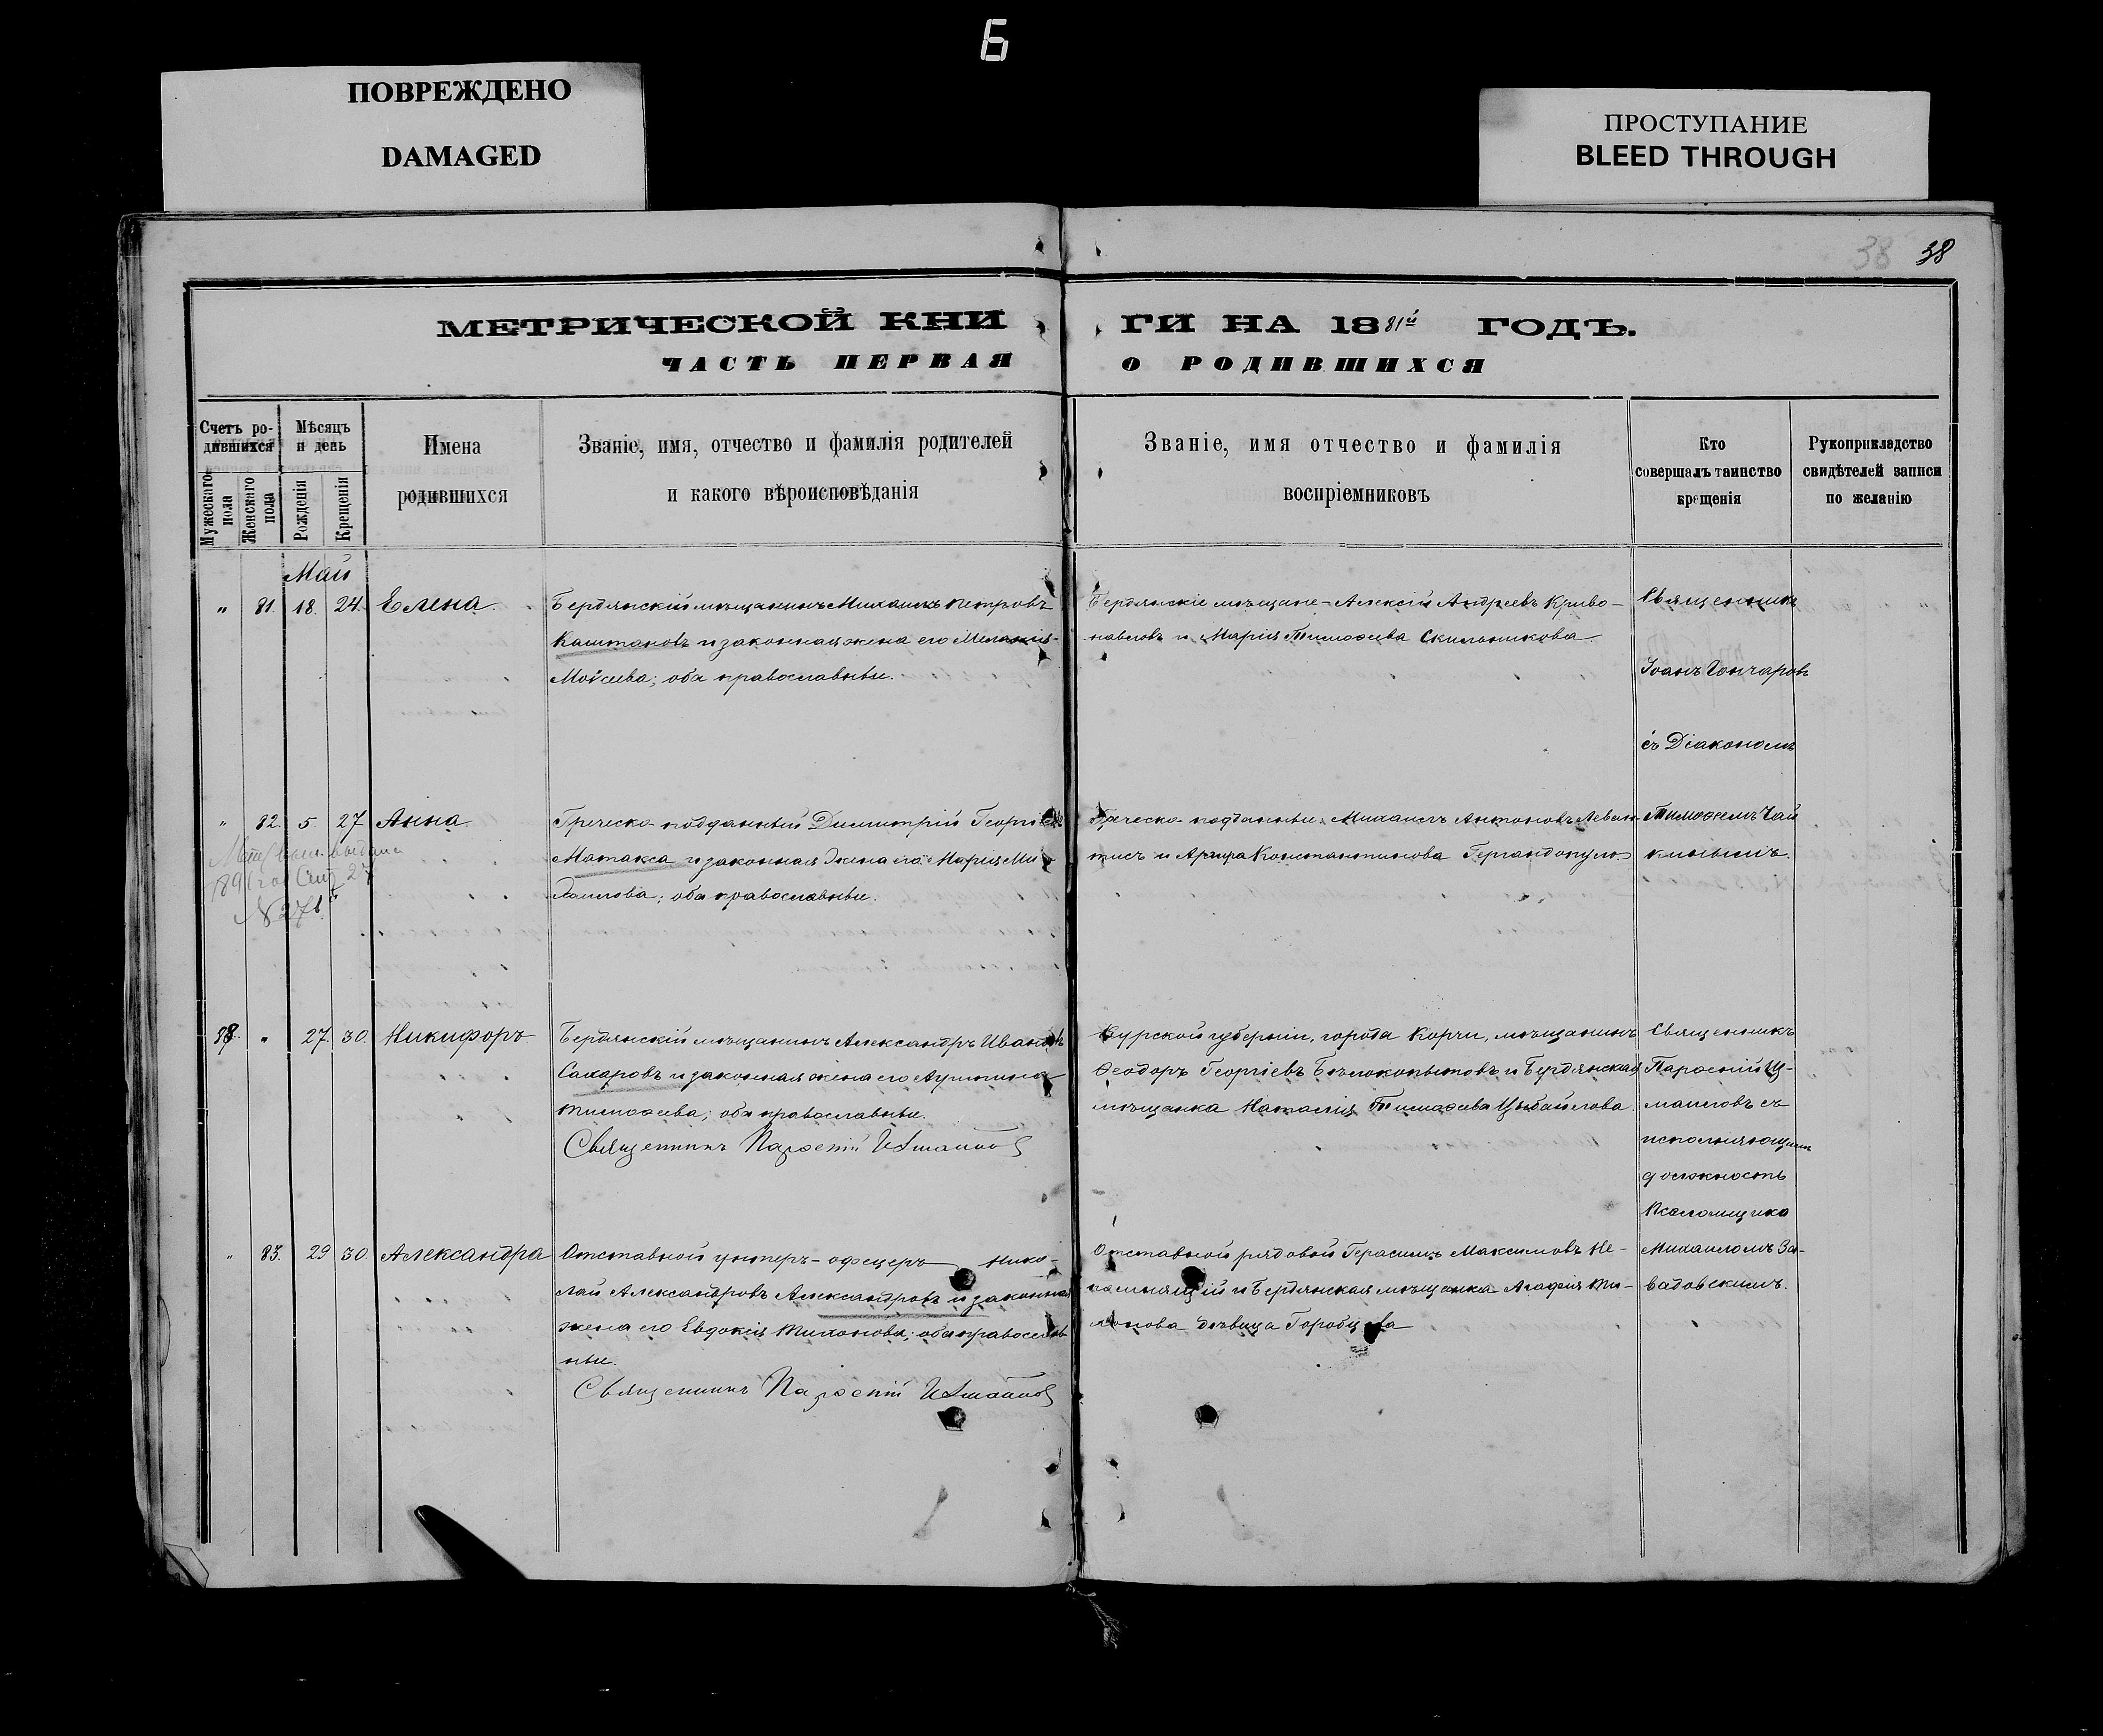 Б
ПОВРЕЖДЕНО
DAMAGED
ПРОСТУПАНИЕ
BLEED THROUGH
38 38
МЕТРИЧЕСКОЙ КНИГИ НА 1881й ГОДЪ.
ЧАСТЬ ПЕРВАЯ О РОДИВШИХСЯ
Счетъ ро-
дившихся
Мужескаго пола
Женскаго пола
Мѣсяцъ
и день
Рожденія
Крещенія
Имена
родившихся
Званіе, имя, отчество и фамилія родителей
и какого вѣроисповѣданія
Званіе, имя отчество и фамилія
воспріемниковъ
Кто
совершалъ таинство
крещенія
Рукоприкладство
свидѣтелей записи
по желанію
Май
" 81. 18. 24. Елена.
Бердянскій мѣщанинъ Михаилъ Петровъ
Каштановъ и законная жена его Меланія
Моѵсеева; оба православные.
Бердянскіе мѣщане - Алексій Андреевъ Криво-
павловъ и Марія Тимоѳеева Скильникова
Священникъ
Іоанъ Гончаровъ
съ Діакономъ
" 82. 5. 27 Анна.
Греческо-подданный Димитрій Георгіевъ
Матакса и законная жена его Марія Ми-
хаилова; оба православные.
Греческо-подданные Михаилъ Антоновъ Леван-
тисъ и Аргира Константинова
Тимоѳеемъ Чай
кинымъ.
№ 276
38. " 27. 30. Никифоръ
Бердянскій мѣщанинъ Александръ Ивановъ
Сахаровъ и законная жена его Агрипина
Тимоѳеева; оба православные.
Священникъ Парѳеній Измаиловъ
Курской губерніи, города Корчи, мѣщанинъ
Ѳеодоръ Георгіевъ Бѣлокопытовъ и Бердянская
мѣщанка Наталія Тимоѳеева Цыбайлова.
Священникъ
Парѳеній Из-
маиловъ съ
исполняющимъ
должность
Псаломщика
Михаиломъ За-
вадовскимъ.
" 83. 29 30. Александра
Отставной унтеръ-офецеръ Нико-
лай Александровъ Александровъ и законная
жена его Евдокія Тихонова; оба православ
ные.
Священникъ Парѳеній Измаиловъ
Отставной рядовой Герасимъ Максимовъ Не-
помнящій и Бердянская мѣщанка Агафія Ти-
хонова дѣвица Горобцева